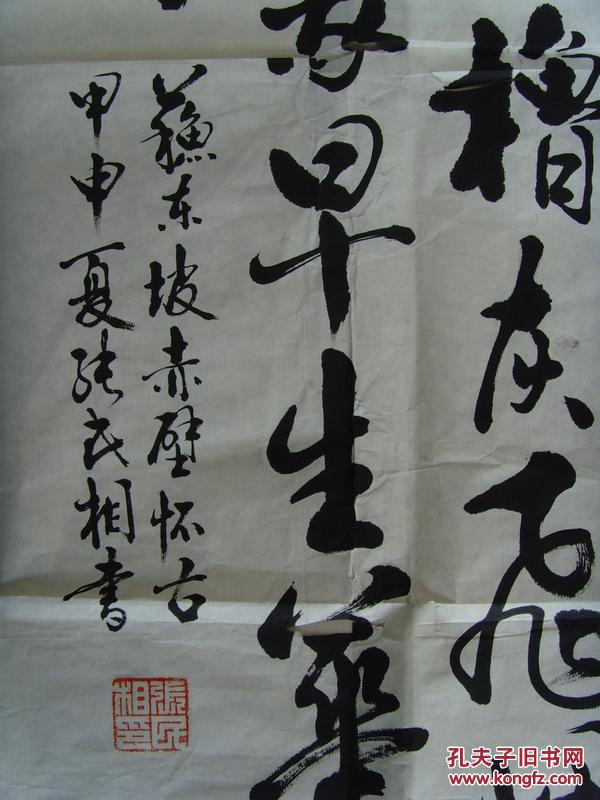 樯灰飞
早生华
蘓东坡赤壁怀古
甲申夏张民相书
張民相印
孔夫子旧书网
www.kongfz.com